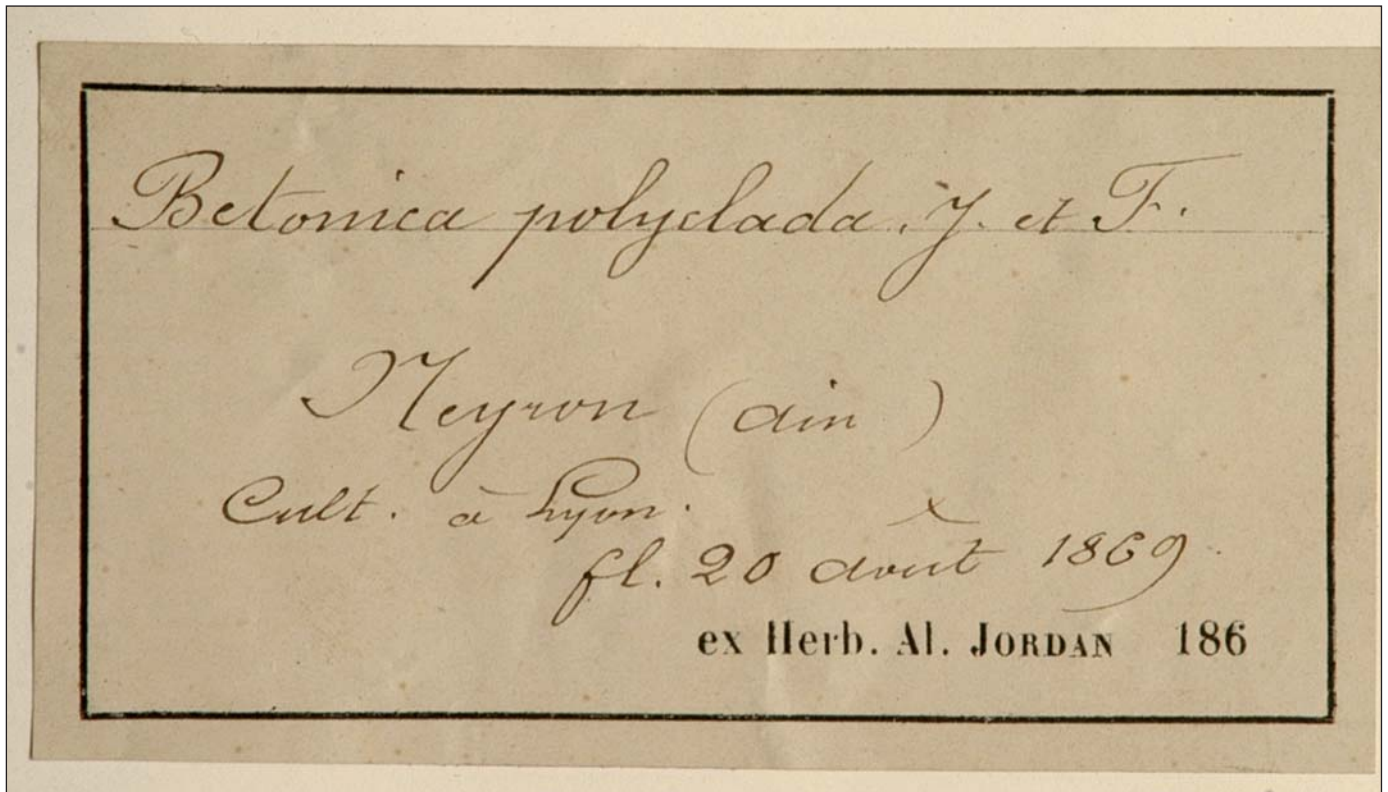 Betonica polyclada. J. et F.
Neyron (ain)
Cult. à Lyon.
fl. 20 août 1869
ex Herb. Al. JORDAN 186